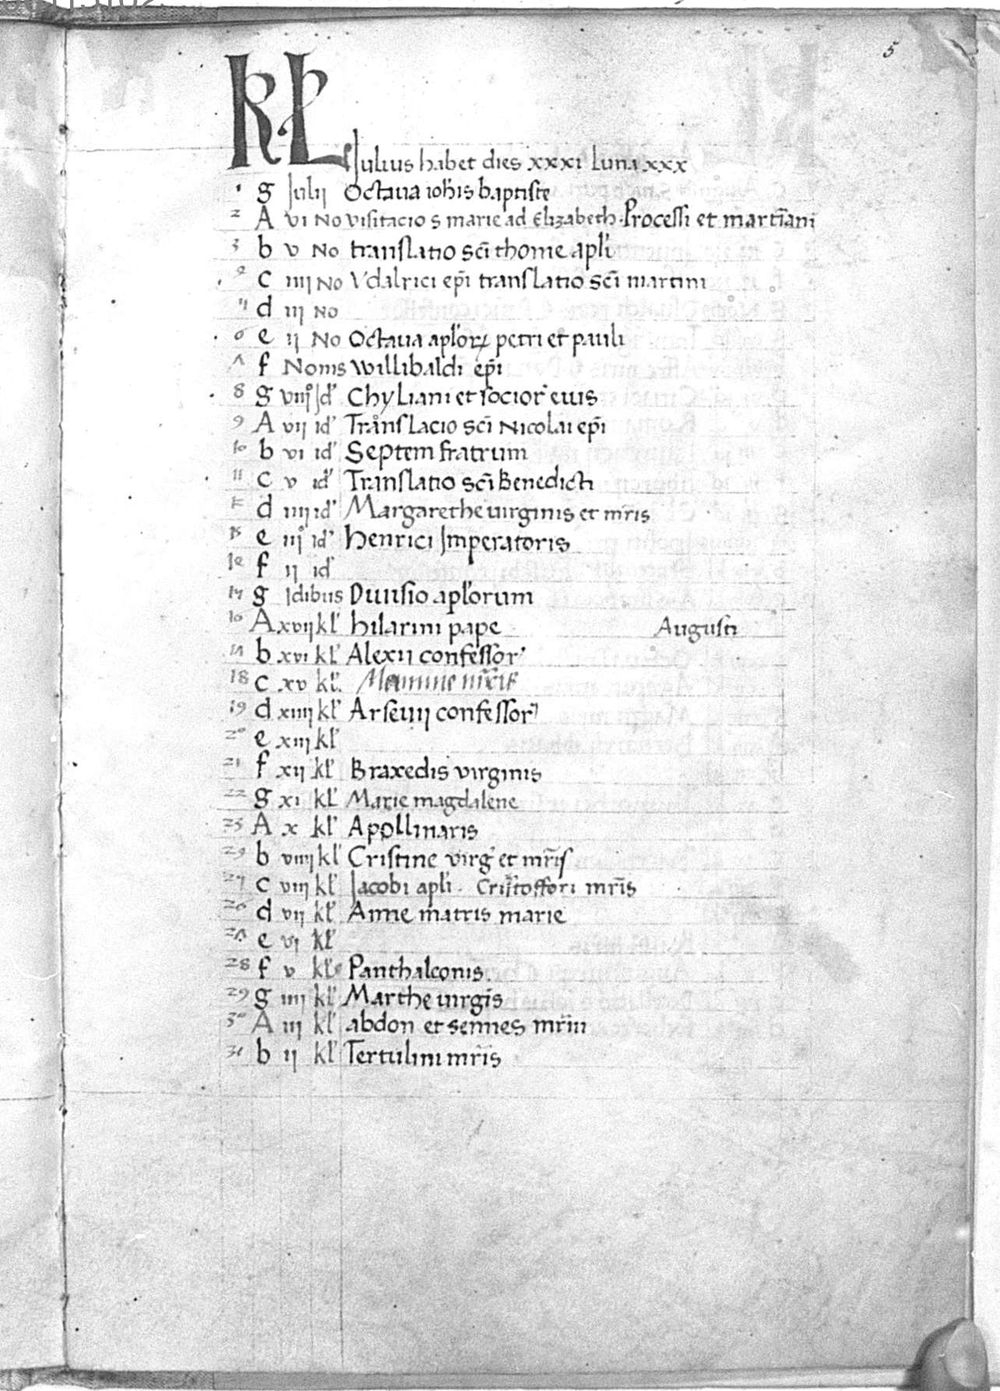 5
KL Iulius habet dies xxxi luna xxx
1 g Iulii Octaua ioh̄is baptiste
2 A vi No visitacio s marie ad Elizabeth. Processi et martīani
3 b v No translatio sc̄i thome apl̓i
4 c iiii No Vdalrici ep̄i translatio sc̄i martini
5 d iii No
6 e ii No Octaua apl̓oꝝ petri et pauli
7 f Nonis willibaldi ep̄i
8 g viii id̓ Chyliani et socior̓ eius
9 A vii id̓ Translacio sc̄i Nicolai ep̄i
10 b vi id̓ Septem fratrum
11 c v id̓ Translatio sc̄i Benedicti
12 d iiii id̓ Margarethe uirginis et mr̄is
13 e iii id̓ henrici Imperatoris
14 f ii id̓
15 g Idibus Diuisio apl̓orum
16 A xvii kl̓ hilarini pape Augusti
17 b xvi kl̓ Alexii confessor̓
18 c xv kl̓. mr̄is
19 d xiiii kl̓ Arsenii confessor̓
20 e xiii kl̓
21 f xii kl̓ Braxedis virginis
22 g xi kl̓ Marie magdalene
23 A x kl̓ Apollinaris
24 b viiii kl̓ Cristine virg̓ et mr̄is
25 c viii kl̓ Iacobi apl̓i . Cristoffori mr̄is
26 d vii kl̓ Anne matris marie
27 e vi kl̓
28 f v kl̓ Panthaleonis
29 g iiii kl̓ Marthe uirgīs
30 A iii kl̓ abdon et sennes mr̄iu
31 b ii kl̓ Tertulini mr̄is